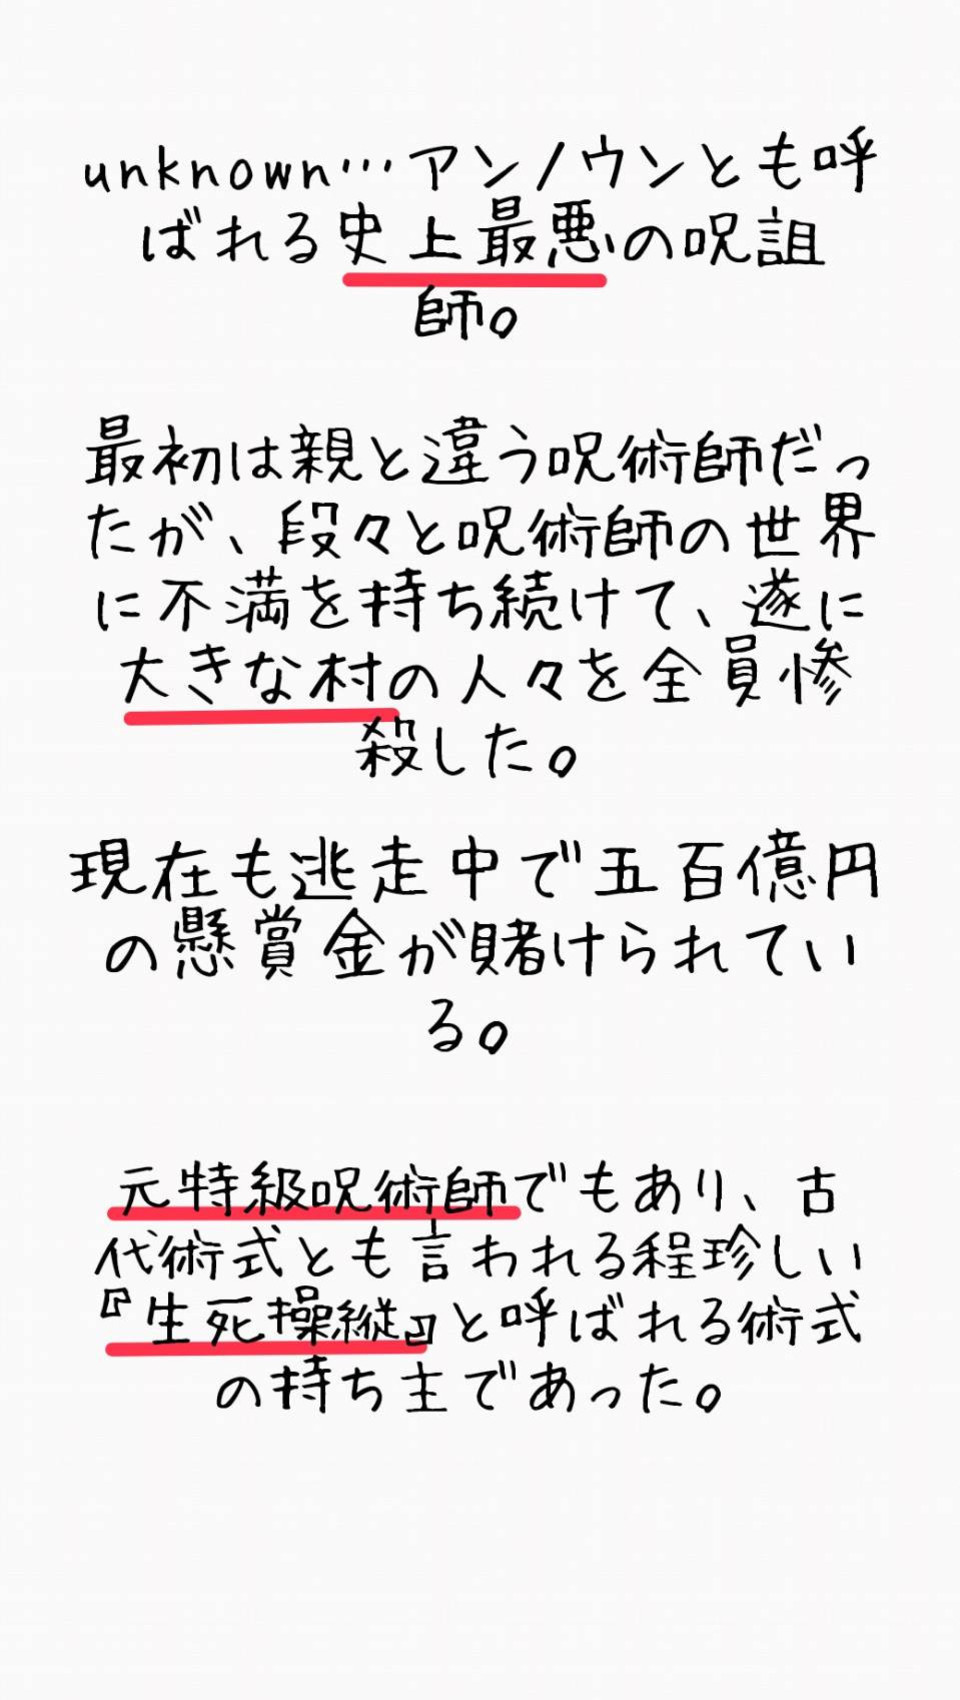 unknown…アンノウンとも呼
ばれる史上最悪の呪詛
師。
最初は親と違う呪術師だっ
たが、段々と呪術師の世界
に不満を持ち続けて、遂に
大きな村の人々を全員惨
殺した。
現在も逃走中で五百億円
の懸賞金が賭けられてい
る。
元特級呪術師でもあり、古
代術式とも言われる程珍しい
『生死操縦』と呼ばれる術式
の持ち主であった。